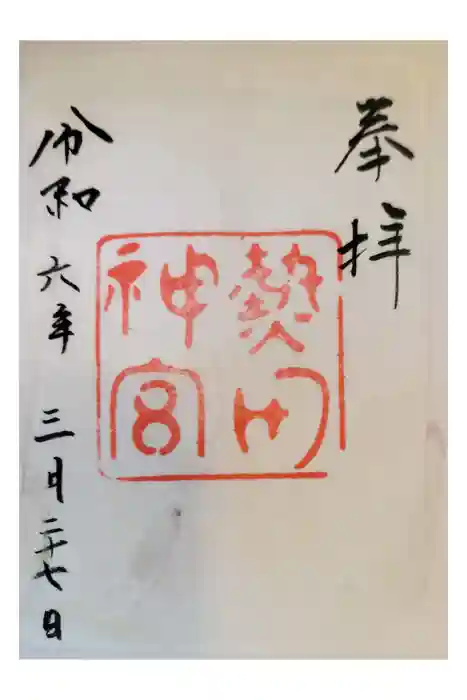 奉拝
熱田
神宮
令和六年三月二十七日